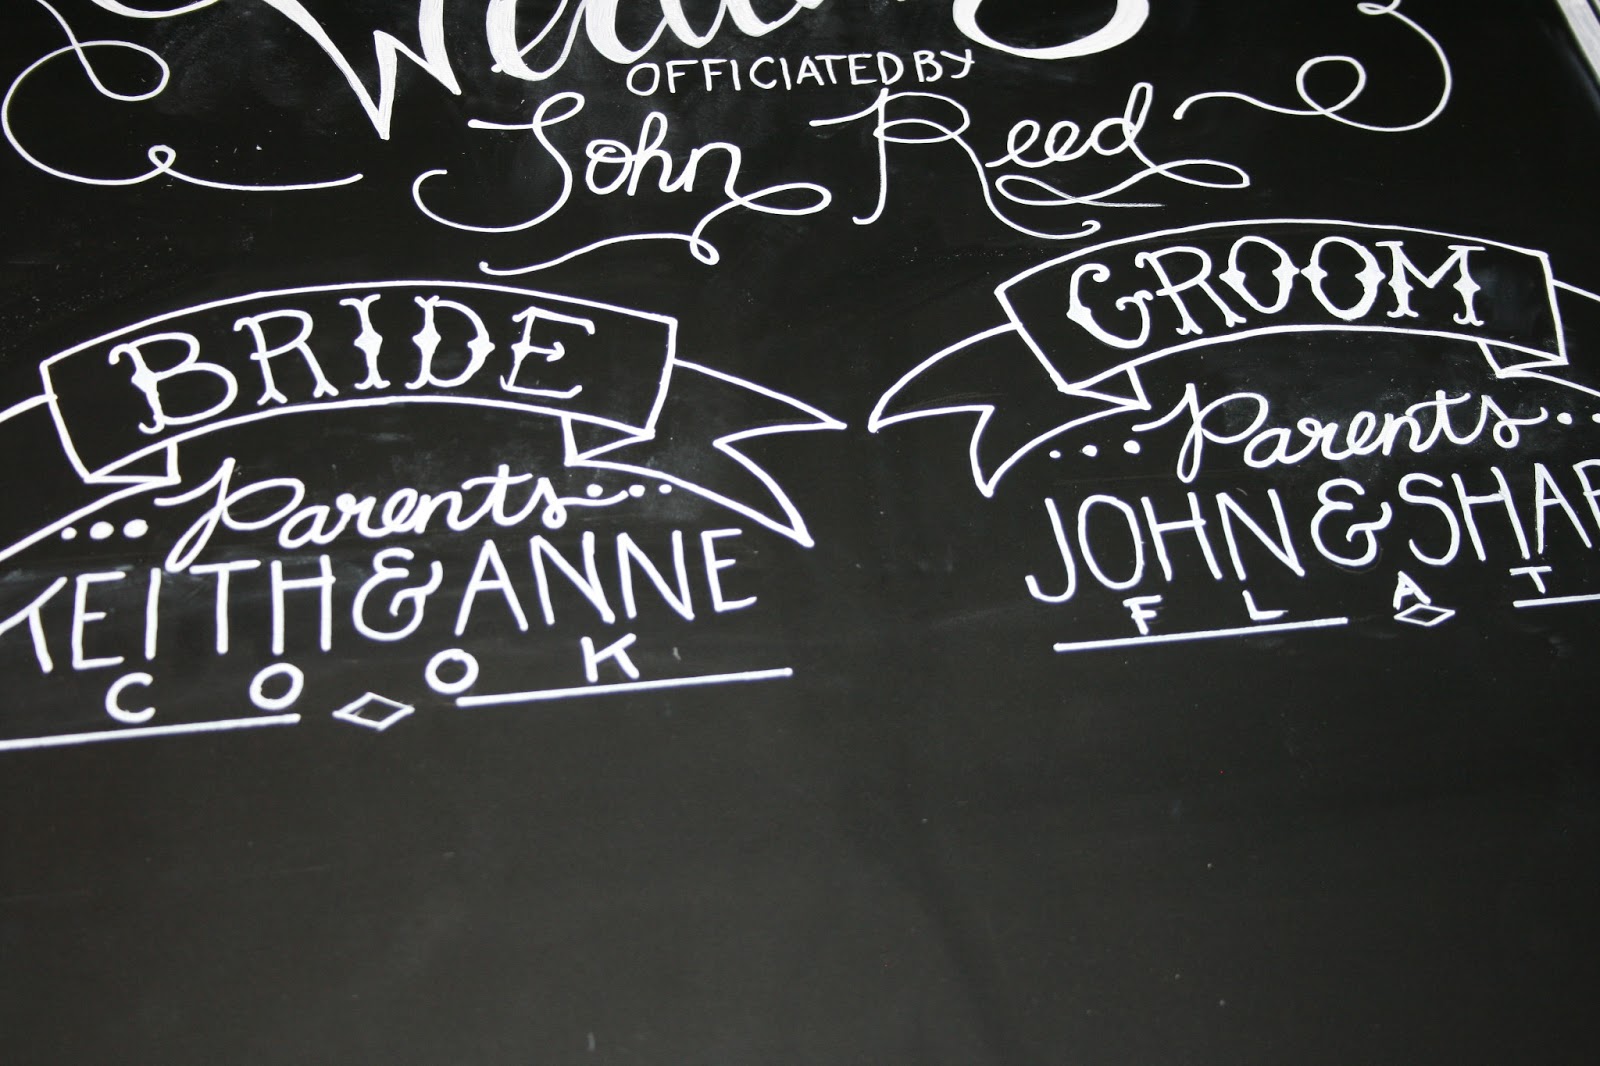 Wedding
OFFICIATED BY
John Reed
BRIDE
...Parents...
KEITH & ANNE
COOK
GROOM
...Parents...
JOHN &
FLAT